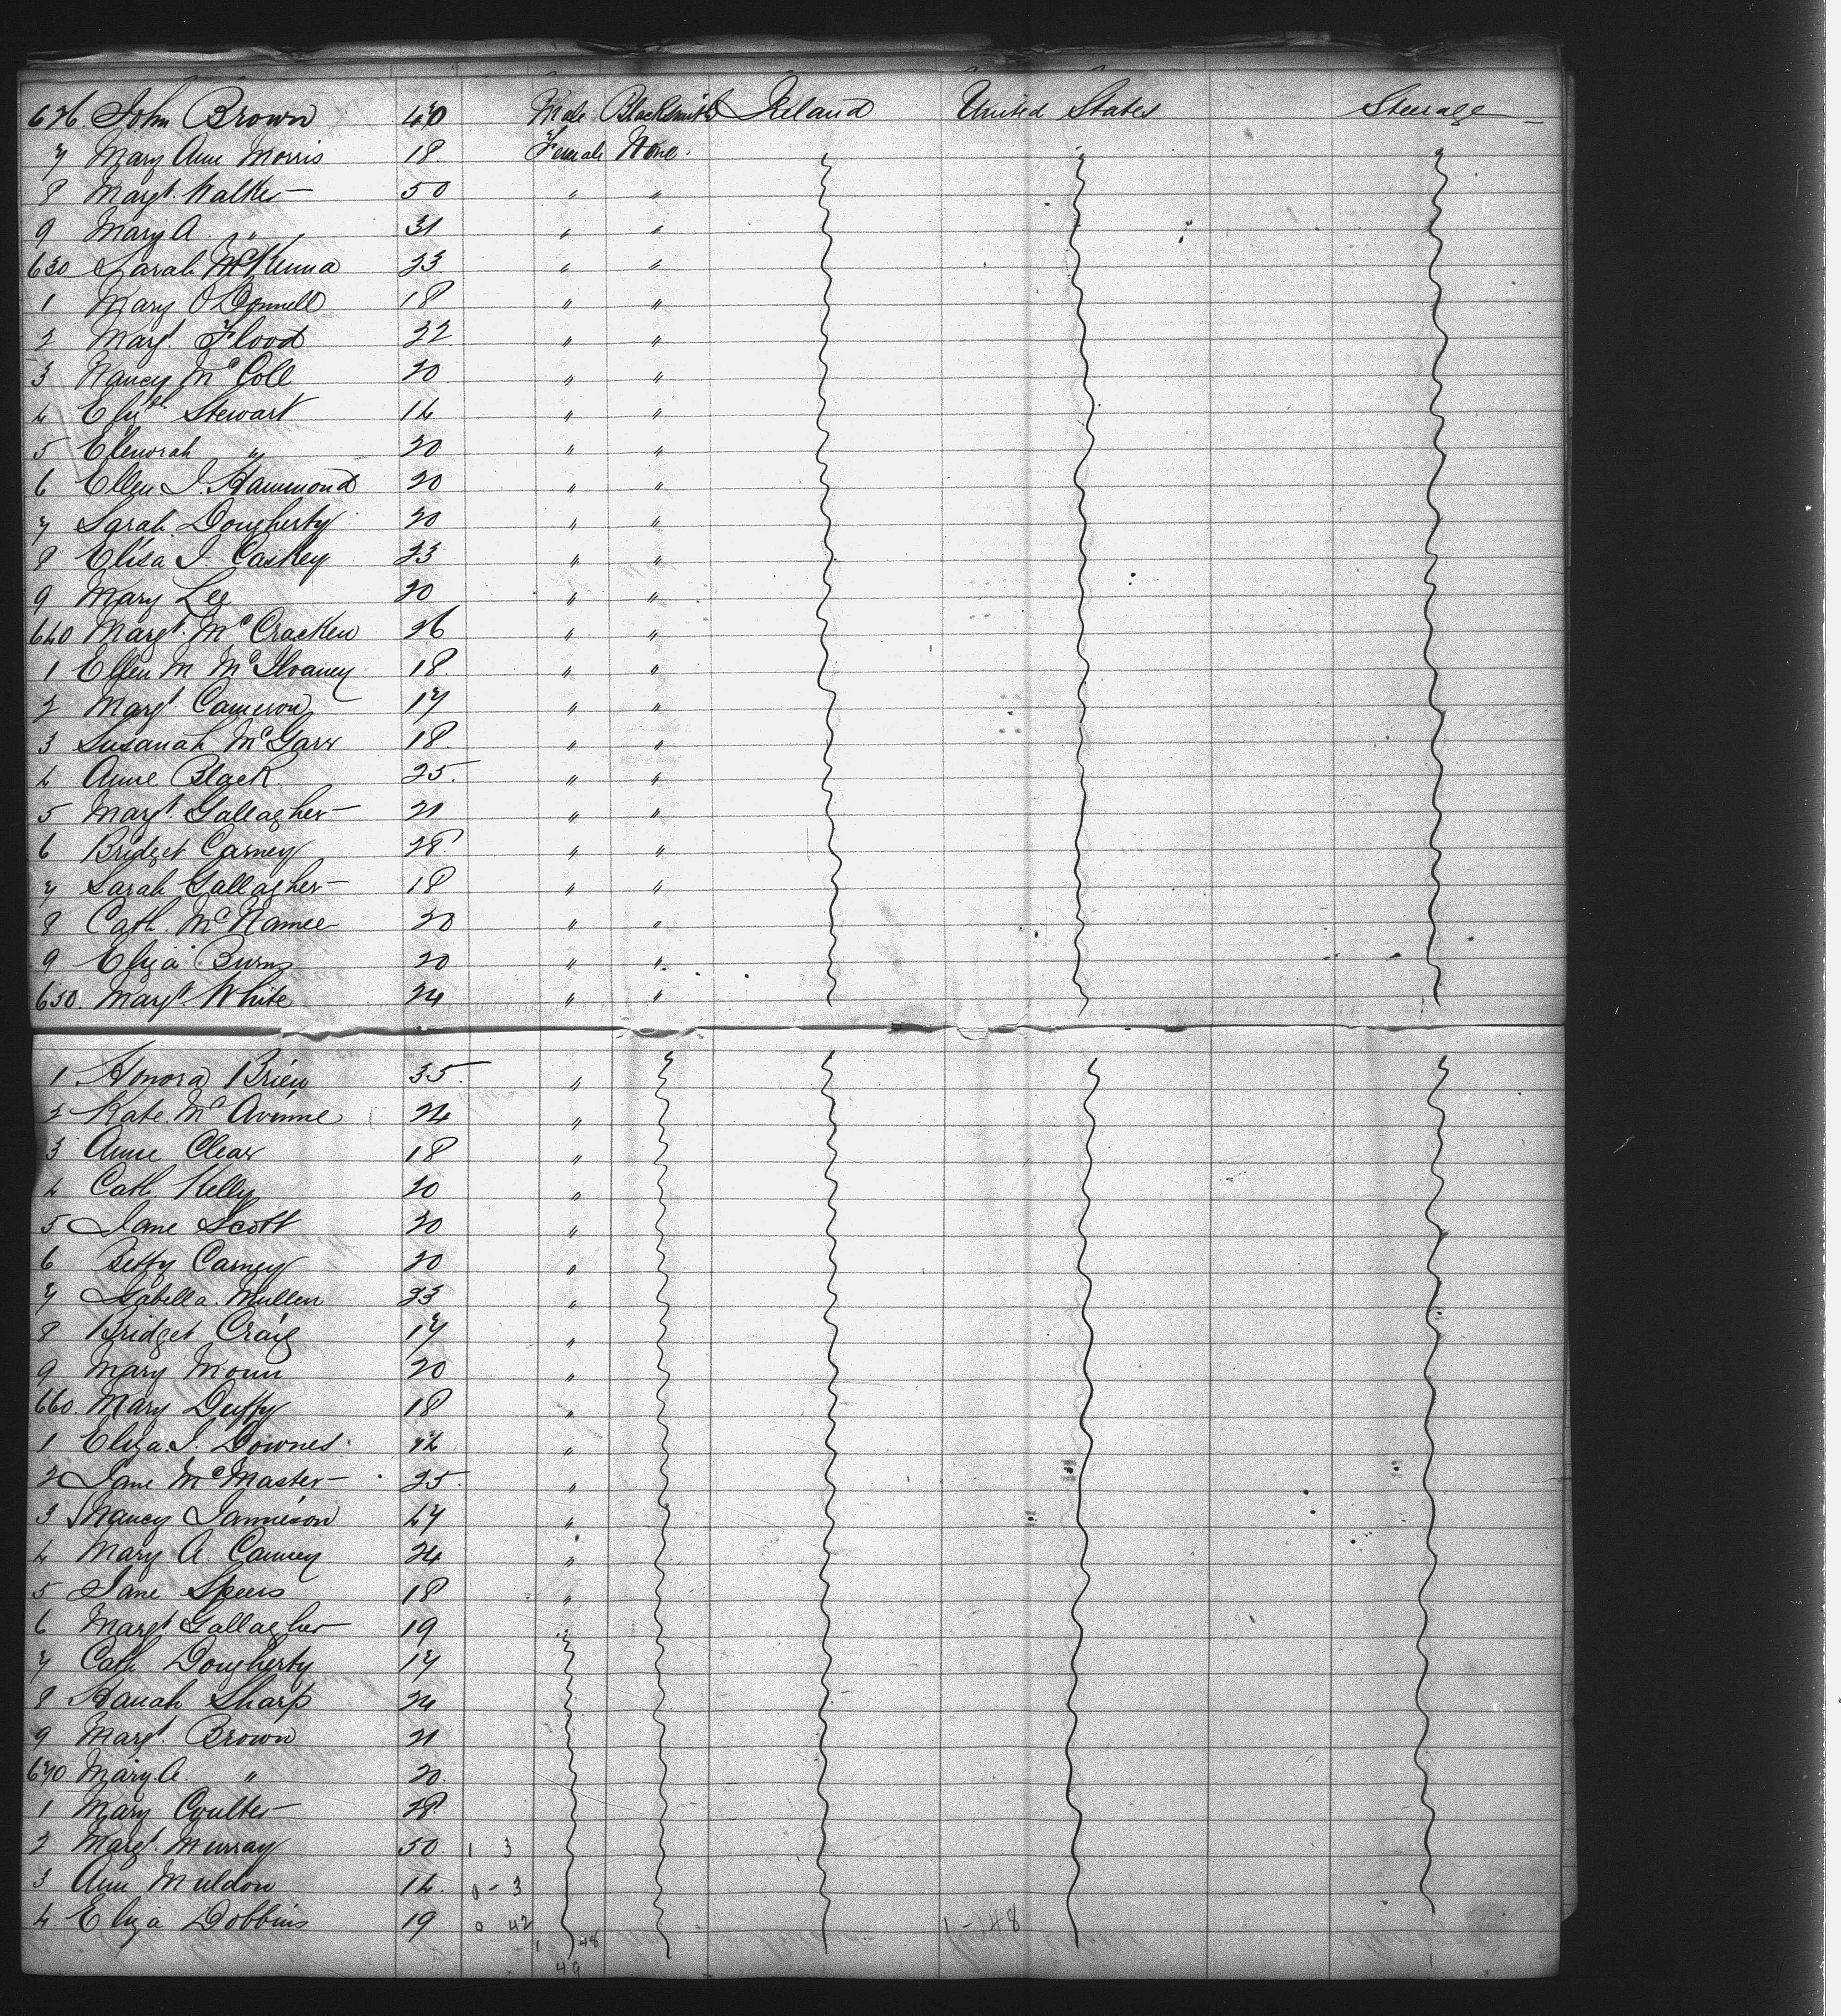 626. John Brown 40 Male Blacksmith Ireland United States Steerage
7 Mary Ann Morris 18. Female None.
8 Margt. Walker 50 " "
9 Mary A. " 31 " "
630 Sarah McKenna 23 " "
1 Mary O'Donnell 18 " "
2 Margt. Flood 22 " "
3 Nancy McColl 20 " "
4 Elizth Stewart 14 " "
5 Elenorah " 20 " "
6 Ellen J. Hammond 20 " "
7 Sarah Dougherty 20 " "
8 Eliza J. Caskey 23 " "
9 Mary Lee 20 " "
640 Margt. McCracken 26 " "
1 Ellen M McIlvaney 18. " "
2 Margt. Cameron 17 " "
3 Susanah McGarr 18. " "
4 Anne Black 25. " "
5 Margt. Gallagher 21 " "
6 Bridget Carney 28 " "
7 Sarah Gallagher 18 " "
8 Cath. McNamee 20 " "
9 Eliza Burns 20 " "
650. Margt. White 24 " "
1 Honora Brien 35. "
2 Kate. McAvinne 24 "
3 Anne Clear 18 "
4 Cath. Kelly 20 "
5 Jane Scott 20 "
6 Betty Carney 20 "
7 Isabella. Mullen 23 "
8 Bridget Craig 17 "
9 Mary Moun 20 "
660. Mary Duffy 18 "
1 Eliza. J. Downes 14 "
2 Jane McMaster 25. "
3 Nancy Jamieson 47 "
4 Mary A. Canney 24 "
5 Jane Speers 18 "
6 Margt. Gallagher 19 "
7 Cath Dougherty 17
8 Hanah Sharp 24
9 Margt. Brown 21
670. Mary A. " 20.
1 Mary Coulter 28.
2 Margt. Murray 50. 1 3
3 Ann Muldon 14. 0 - 3
4 Eliza Dobbins 19 0 42 1-48
1 48
49